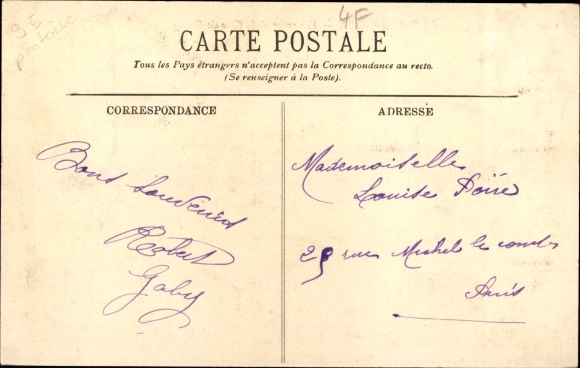 95
pontoise
4F
CARTE POSTALE
Tous les Pays étrangers n'acceptent pas la Correspondance au recto.
(Se renseigner à la Poste).
CORRESPONDANCE
Bons Souvenirs
Robert
Gaby
ADRESSE
Mademoiselle
Louise
rue Michel le comte
Paris